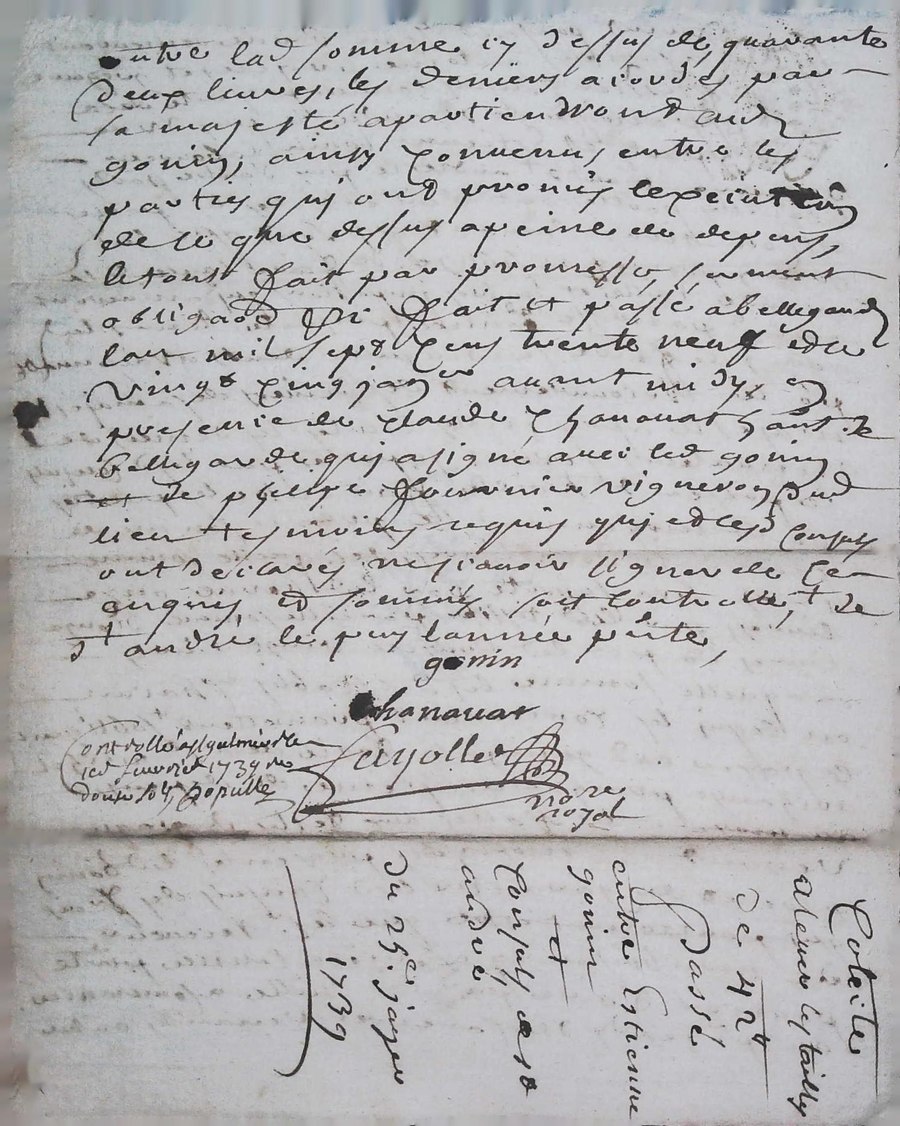 outre lad somme cy dessus de quarante
deux livres, les deniers acordés par
sa majesté apartiendront aud
gonin, ainsy convenus entre les
parties qui ont promis lexecution
de ce que dessus a peine de depens,
le tout fait par promesse, serment
obligaon &c fait et passé a bellegarde
lan mil sept cens trente neuf et le
vingt cinq janer avant midy, en
presence de claude Chanavat hant de
bellegarde qui a signé avec led gonin
et de philipe fournier vigneron dud
lieu tesmoins requis qui et lesd Consuls
ont declarés ne scavoir signer de ce
enquis et sommés soit controllé, de
st andré le puy lannée pnte,
gonin
Chanavat
fayolle
nore
royal
Controllé a
fevrier 1739 Re
douze sols
Coteite
a lever les tailles
de 42 lt
Passé
entre Estienne
gonin
et
Consuls de st
andré
du 25e janer
1739